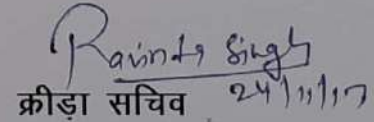 Ravinder Singh
क्रीड़ा सचिव 24/11/17